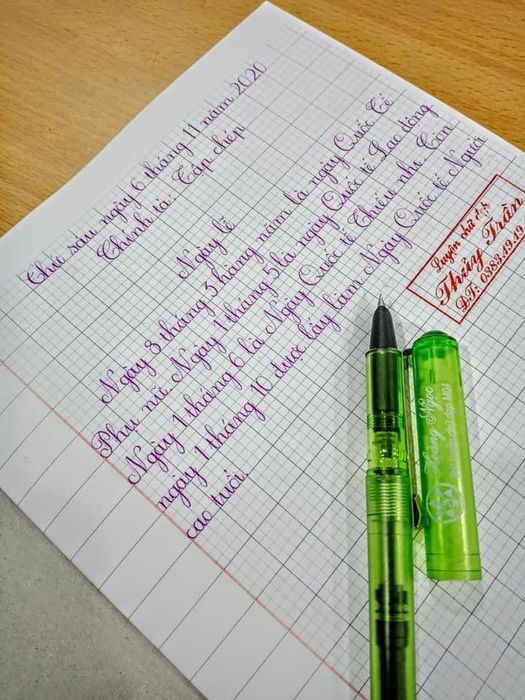 Thứ sáu ngày 6 tháng 11 năm 2020
Chính tả: Tập chép
Ngày lễ
Ngày 8 tháng 3 hàng năm là ngày Quốc Tế
Phụ nữ. Ngày 1 tháng 5 là ngày Quốc tế Lao động
Ngày 1 tháng 6 là Ngày Quốc tế Thiếu nhi. Còn
ngày 1 tháng 10 được lấy làm Ngày Quốc tế Người
cao tuổi.
Luyện chữ đẹp
Thủy Trần
ĐT: 0383.49.49
Ngọc